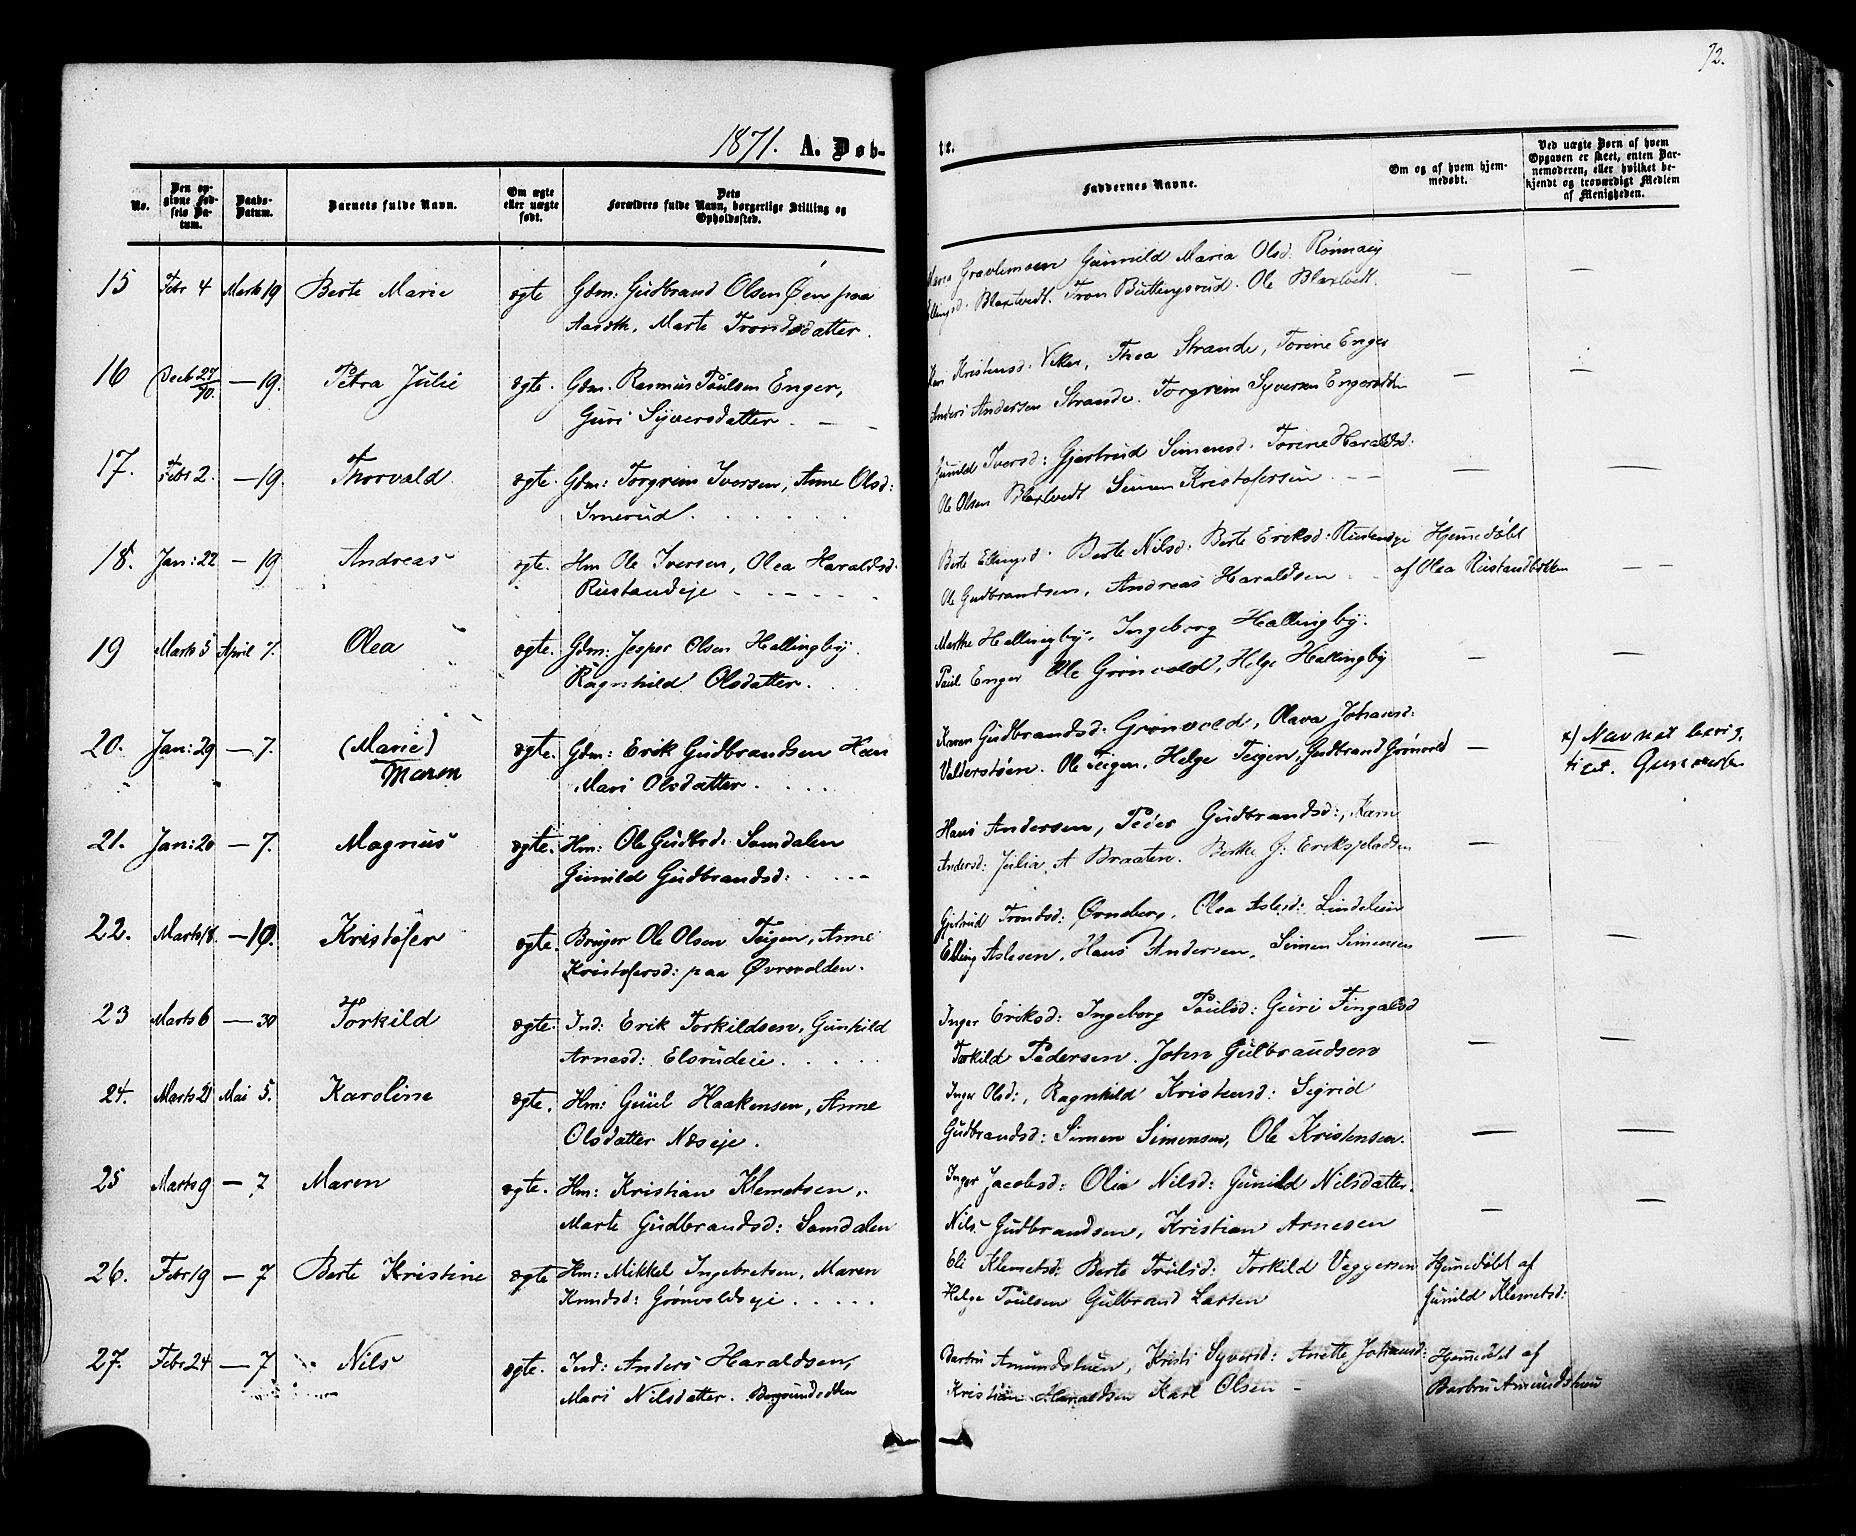 72.
1871. A. Døb-
te.
No.
Den op-
givne Fød-
sels Da-
tum.
Daabs-
Datum.
Barnets fulde Navn.
Om ægte
eller uægte
født.
Dets
Forældres fulde Navn, borgerlige Stilling og
Opholdssted.
Faddernes Navne.
Om og af hvem hjem-
medøbt.
Ved uægte Børn af hvem
Opgaven er skeet, enten Bar-
nemoderen, eller hvilket be-
kjendt og troværdigt Medlem
af Menigheden.
15 Febr 4 Marts 19 Berte Marie ægte Gdm: Gudbrand Olsen Øen paa
Aasøth, Marte Tronsdatter.
Gravlimoen Gunild Maria Olsd: Rønnaug
Ellingsd. Blaxtvedt. Tron Buttingsrud. Ole Blaxtvedt. — —
16 Decb 27/70. — 19. Petra Julie ægte. Gdm. Rasmus Poulsen Enger,
Guri Syversdatter. — —
Kari Kristensd. Viker, Thea Strande, Torine Enger
Anders Andersen Strande. Torgrim Syversen — —
17. Febr 2. — 19. Thorvald ægte. Gdm: Torgrim Iversen, Anne Olsd:
Imerud.
Gunild Iversd: Gjertrud Simensd. Torine Haraldsd:
Ole Olsen Blaxtvedt Simen Kristofersen. — —
18. Jan: 22 — 19 Andreas ægte. Hm Ole Iversen, Olea Haraldsd.
Rustandeje
Berte Ellingsd. Berte Nilsd. Berte Eriksd. Rustandeje Hjemmedøbt
Ole Gudbrandsen, Andreas Haraldsen af Olea Rustandbakken — —
19 Marts 5 April 7. Olea ægte. Gdm: Jesper Olsen Hallingby.
Ragnhild Olsdatter.
Marthe Hallingby. Ingeborg Hallingby.
Paul Enger Ole Grønvold, Helge Hallingby — —
20. Jan: 29 — 7. (Marie) ægte. Gdm: Erik Gudbrandsen Hen
Maren Mari Olsdatter.
Karen Gudbrandsd: Grønvold, Olava Johansd: x) Navnet berig-
Valderstøen. Ole Teigen, Helge Teigen, Gudbrand Grønvold — tiget.
21. Jan: 20 — 7. Magnus ægte. Hm: Ole Gudbsd: Samdalen
Gunild Gudbrandsd:
Hans Andersen, Peder Gudbrandsd:, Karn
Andersd: Julia A Braaten. Berthe G: —
22. Marts 18. — 10. Kristofer ægte. Bruger Ole Olsen Teigen, Anne
Kristofersd: paa Øvrevolden.
Gjertrud Trondsd: Ørneberg, Olea Aslesd: Lindelien
Elling Aslesen, Hans Andersen, Simen Simensen — —
23 Marts 6 — 30 Torkild ægte. Ind: Erik Torkildsen, Gunhild
Arnesd: Elsrudeie.
Inger Eriksd: Ingeborg Poulsd: Guri Fingalsd
Torkild Pedersen. John Gulbrandsen — —
24. Marts 21 Mai 5. Karoline ægte. Hm: Guul Haakensen, Anne
Olsdatter Næseje.
Inger Olsd:, Ragnhild Kristensd: Sigrid
Gudbrandsd: Simen Simensen, Ole Kristensen. — —
25 Marts 9 — 7 Maren ægte. Hm: Kristian Klemetsen,
Marte Gudbrandsd: Samdalen
Inger Jacobsd: Olia Nilsd: Gunild Nilsdatter.
Nils Gudbrandsen, Kristian Arnesen — —
26. Febr 19 — 7 Berte Kristine ægte Hm: Mikkel Ingebretsen, Maren
Knudsd: Grønvoldseje
Eli Klemetsd: Berte Trulsd: Torkild Veggersen Hjemmedøbt af
Helge Poulsen Gulbrand Larsen Gunild Klemetsd:
27. Febr 24 — 7 Nils ægte. Ind: Anders Haraldsen,
Mari Nilsdatter.
Barbru Amundstuen, Kristi Syversd: Anette Johansd: Hjemmedøbt af
Kristian Haraldsen Karl Olsen — Barbru Amundstuen